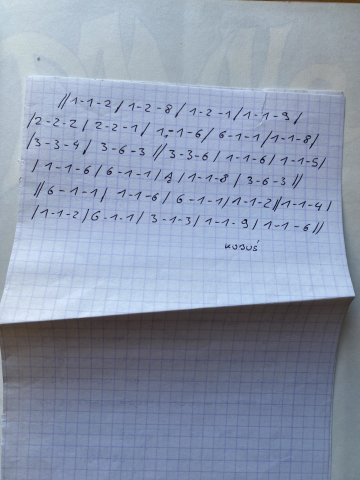 //1-1-2/ 1-2-8/ 1-2-1/1-1-9/
/2-2-2/ 2-2-1/ 1-1-6/ 6-1-1/1-1-8/
/3-3-4/ 3-6-3 // 3-3-6/ 1-1-6/ 1-1-5/
/1-1-6/ 6-1-1/ A/ 1-1-8/ 3-6-3//
// 6-1-1/ 1-1-6/ 6-1-1/1-1-2//1-1-4/
/1-1-2/ 6-1-1/ 3-1-3/ 1-1-9/ 1-1-6//
KUBUŚ